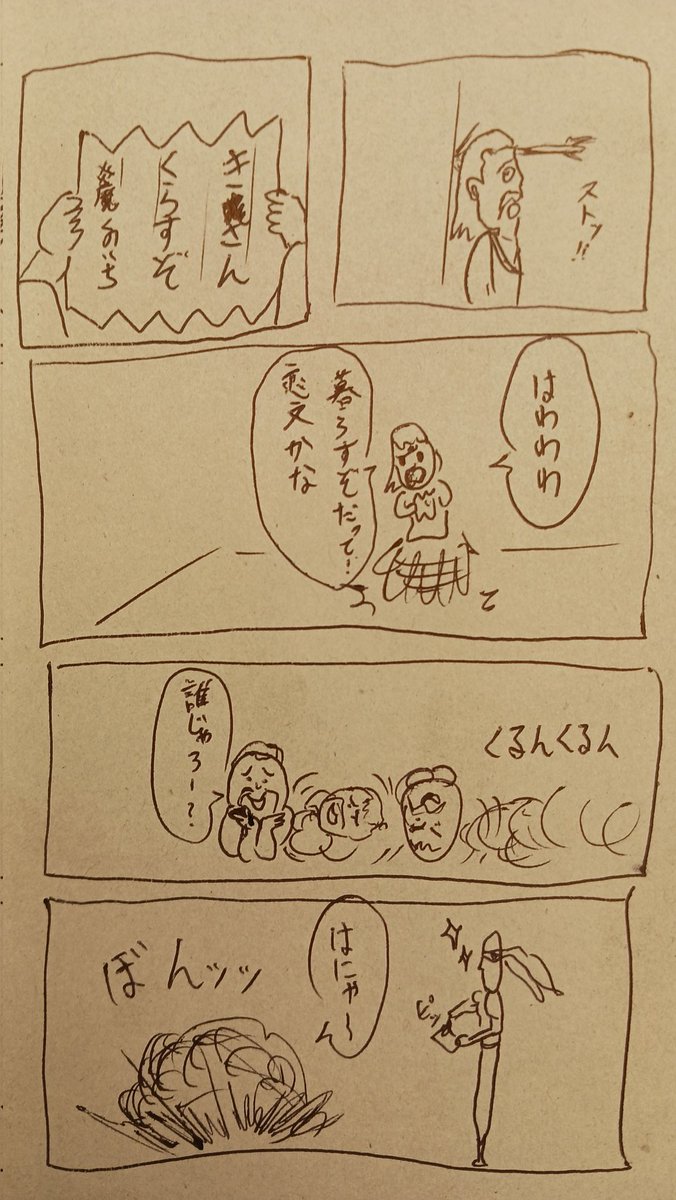 ストッ!!
きさん
くらすぞ
魔のいち
はわわわ
暮らすぞだって!
恋文かな
くるんくるん
誰じゃろー?
ピッ
はにゃ〜
ぼんッッ